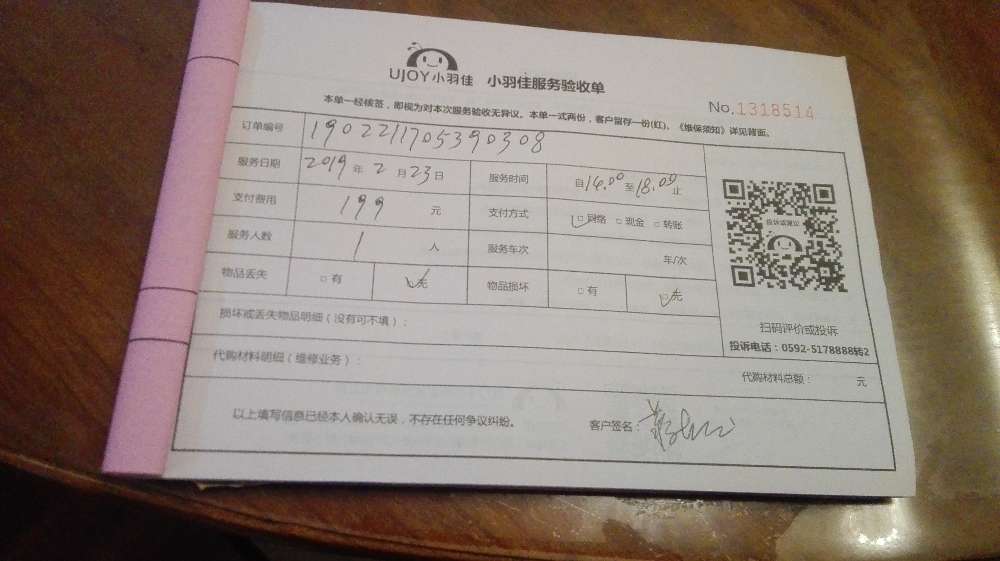 UJOY小羽佳 小羽佳服务验收单
No.1318514
本单一经核签，即视为对本次服务验收无异议。本单一式两份，客户留存一份(红)。《维保须知》详见背面。
订单编号 1902211705390308
服务日期 2019年2月23日 服务时间 自14.00至18.00止
支付费用 199元 支付方式 □网络 □现金 □转账
服务人数 1人 服务车次 车/次
物品丢失 □有 □无 物品损坏 □有 □无
投诉或建议
扫码评价或投诉
投诉电话：0592-5178888转2
损坏或丢失物品明细（没有可不填）：
代购材料明细（维修业务）：
代购材料总额： 元
以上填写信息已经本人确认无误，不存在任何争议纠纷。 客户签名：